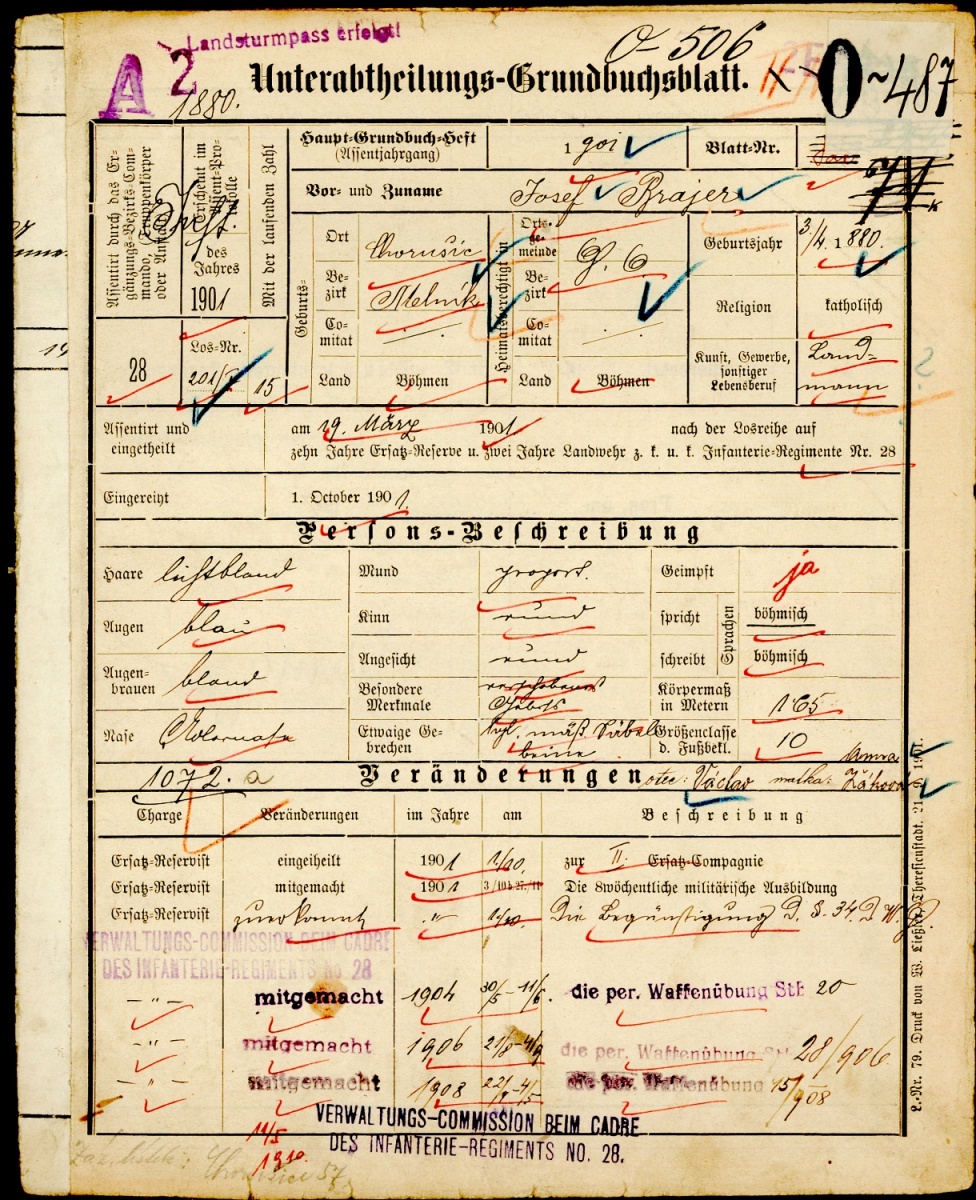 Landsturmpass erfolgt!
A 2
1880.
O-506
Unterabtheilungs-Grundbuchsblatt.
O~487
Assentirt durch das Ergänzungs-Bezirks-Commando, Truppenkörper oder Anstalt
28
Erscheint im Assent-Protokolle
des Jahres
1901
Los-Nr.
Mit der laufenden Zahl
15
Haupt-Grundbuch-Heft
(Assentjahrgang)
1901
Blatt-Nr.
Vor- und Zuname
Josef Brajer
Geburts-
Ort
Chorušic
Bezirk
Melnik
Comitat
Land
Böhmen
Heimatsberechtigt in
Ortsgemeinde
Bezirk
Comitat
Land
Böhmen
Geburtsjahr
3/4. 1880.
Religion
katholisch
Kunst, Gewerbe, sonstiger Lebensberuf
Landmann
Assentirt und eingetheilt
am 19. März 1901 nach der Losreihe auf
zehn Jahre Ersatz-Reserve u. zwei Jahre Landwehr z. k. u. k. Infanterie-Regimente Nr. 28
Eingereiht
1. October 1901.
Persons-Beschreibung
Haare lichtblond
Mund proport.
Geimpft ja
Augen blau
Kinn rund
spricht
Sprachen
böhmisch
Augenbrauen blond
Angesicht rund
schreibt
böhmisch
Besondere Merkmale
Körpermaß in Metern 165
Nase
Etwaige Gebrechen mäß. Säbelbeine
Größenclasse d. Fußbekl. 10
1072. a
Veränderungen
otec: Václav matka: Anna
Charge
Veränderungen
im Jahre
am
Beschreibung
Ersatz-Reservist eingetheilt 1901 1/10. zur II. Ersatz-Compagnie
Ersatz-Reservist mitgemacht 1901 Die 8wöchentliche militärische Ausbildung
Ersatz-Reservist zuerkannt " 1/10 Die Begünstigung D. §. 34. D. W. G.
VERWALTUNGS-COMMISSION BEIM CADRE
DES INFANTERIE-REGIMENTS No 28
-"- mitgemacht 1904 30/5-11/6. die per. Waffenübung StB 20
-"- mitgemacht 1906 die per. Waffenübung 28/906
-"- mitgemacht 1908 die per. Waffenübung 15/908
VERWALTUNGS-COMMISSION BEIM CADRE
DES INFANTERIE-REGIMENTS NO. 28.
1910